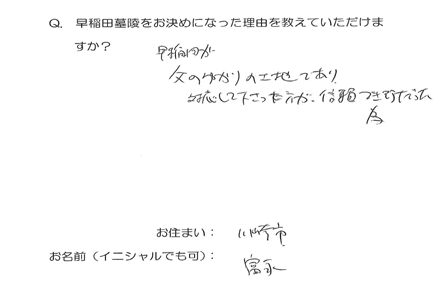 Q. 早稲田墓陵をお決めになった理由を教えていただけま
すか？
早稲田が
父のゆかりの土地であり
対応して下さった方が、信頼できそうだった
為
お住まい： 川崎市
お名前（イニシャルでも可）： 富永